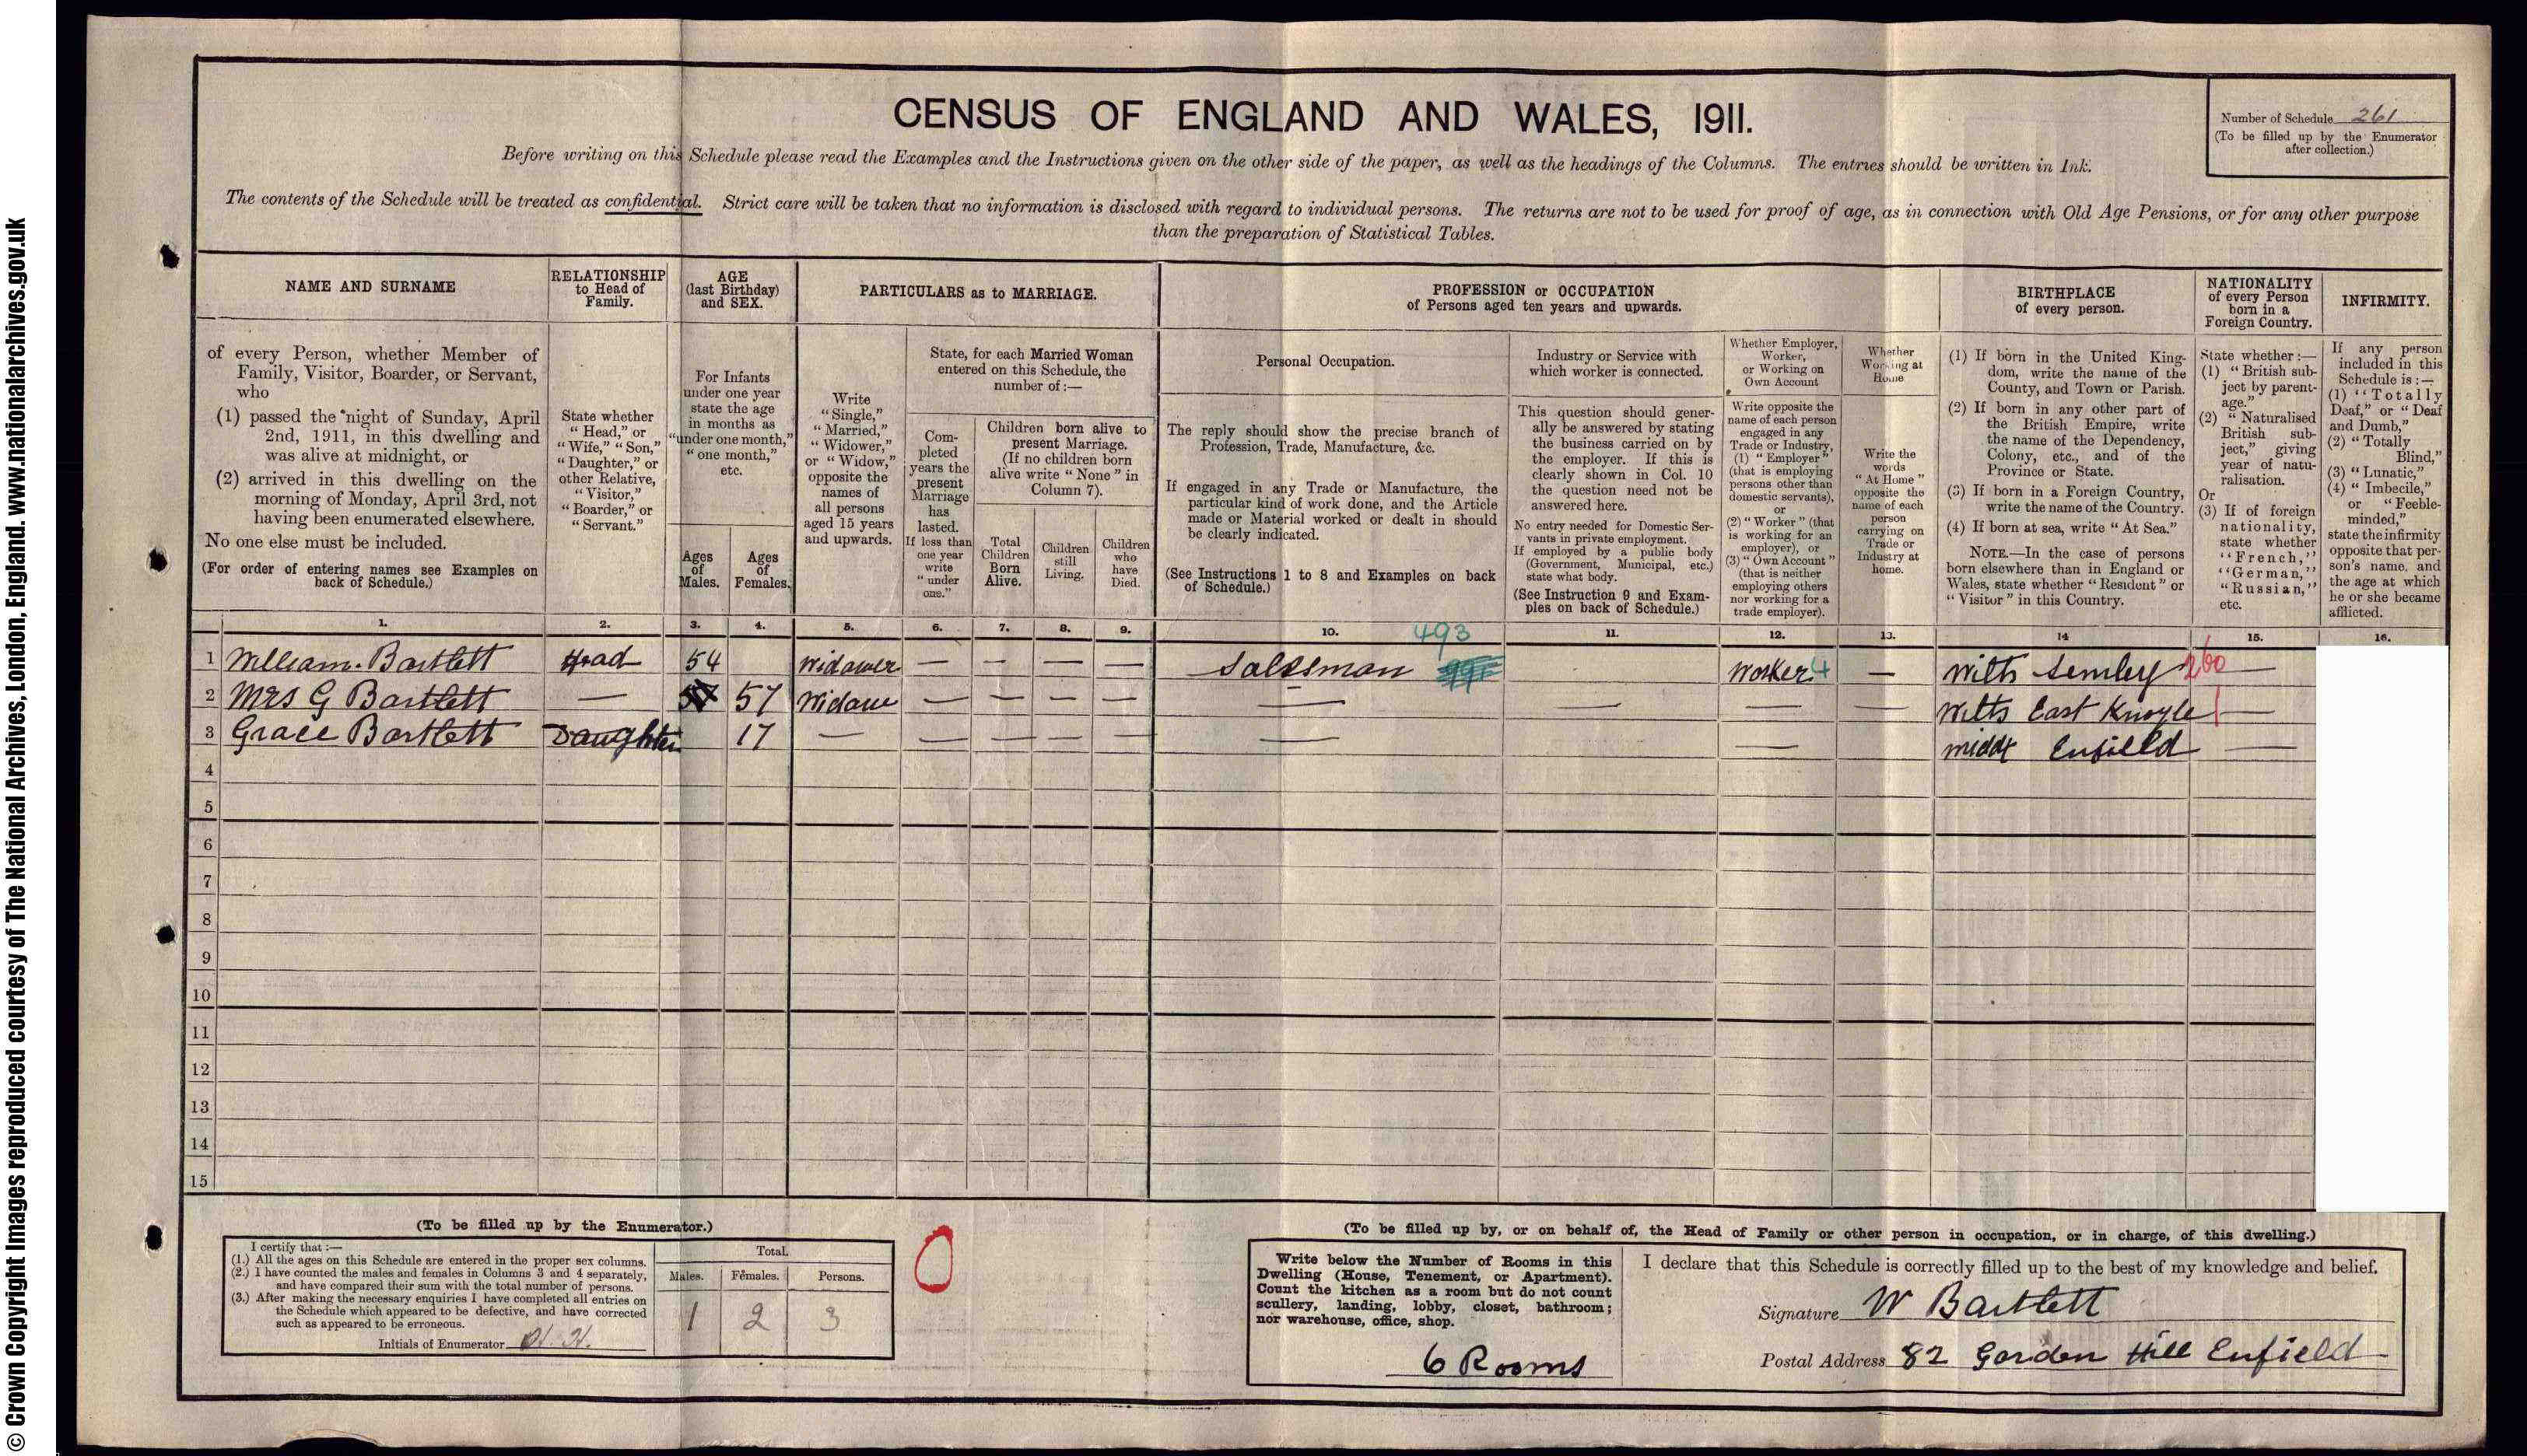 © Crown Copyright Images reproduced courtesy of The National Archives, London, England. www.nationalarchives.gov.uk
CENSUS OF ENGLAND AND WALES, 1911.
Number of Schedule 261
(To be filled up by the Enumerator
after collection.)
Before writing on this Schedule please read the Examples and the Instructions given on the other side of the paper, as well as the headings of the Columns. The entries should be written in Ink.
The contents of the Schedule will be treated as confidential. Strict care will be taken that no information is disclosed with regard to individual persons. The returns are not to be used for proof of age, as in connection with Old Age Pensions, or for any other purpose
than the preparation of Statistical Tables.
NAME AND SURNAME
of every Person, whether Member of
Family, Visitor, Boarder, or Servant,
who
(1) passed the night of Sunday, April
2nd, 1911, in this dwelling and
was alive at midnight, or
(2) arrived in this dwelling on the
morning of Monday, April 3rd, not
having been enumerated elsewhere.
No one else must be included.
(For order of entering names see Examples on
back of Schedule.)
RELATIONSHIP
to Head of
Family.
State whether
"Head," or
"Wife," "Son,"
"Daughter," or
other Relative,
"Visitor,"
"Boarder," or
"Servant."
AGE
(last Birthday)
and SEX.
For Infants
under one year
state the age
in months as
"under one month,"
"one month,"
etc.
Ages
of
Males.
Ages
of
Females.
PARTICULARS as to MARRIAGE.
Write
"Single,"
"Married,"
"Widower,"
or "Widow,"
opposite the
names of
all persons
aged 15 years
and upwards.
State, for each Married Woman
entered on this Schedule, the
number of:—
Com-
pleted
years the
present
Marriage
has
lasted.
If less than
one year
write
"under
one."
Children born alive to
present Marriage.
(If no children born
alive write "None" in
Column 7).
Total
Children
Born
Alive.
Children
still
Living.
Children
who
have
Died.
PROFESSION or OCCUPATION
of Persons aged ten years and upwards.
Personal Occupation.
The reply should show the precise branch of
Profession, Trade, Manufacture, &c.
If engaged in any Trade or Manufacture, the
particular kind of work done, and the Article
made or Material worked or dealt in should
be clearly indicated.
(See Instructions 1 to 8 and Examples on back
of Schedule.)
Industry or Service with
which worker is connected.
This question should gener-
ally be answered by stating
the business carried on by
the employer. If this is
clearly shown in Col. 10
the question need not be
answered here.
No entry needed for Domestic Ser-
vants in private employment.
If employed by a public body
(Government, Municipal, etc.)
state what body.
(See Instruction 9 and Exam-
ples on back of Schedule.)
Whether Employer,
Worker,
or Working on
Own Account
Write opposite the
name of each person
engaged in any
Trade or Industry,
(1) "Employer"
(that is employing
persons other than
domestic servants),
or
(2) "Worker" (that
is working for an
employer), or
(3) "Own Account"
(that is neither
employing others
nor working for a
trade employer).
Whether
Working at
Home
Write the
words
"At Home"
opposite the
name of each
person
carrying on
Trade or
Industry at
home.
BIRTHPLACE
of every person.
(1) If born in the United King-
dom, write the name of the
County, and Town or Parish.
(2) If born in any other part of
the British Empire, write
the name of the Dependency,
Colony, etc., and of the
Province or State.
(3) If born in a Foreign Country,
write the name of the Country.
(4) If born at sea, write "At Sea."
NOTE.—In the case of persons
born elsewhere than in England or
Wales, state whether "Resident" or
"Visitor" in this Country.
NATIONALITY
of every Person
born in a
Foreign Country.
State whether:—
(1) "British sub-
ject by parent-
age."
(2) "Naturalised
British sub-
ject," giving
year of natu-
ralisation.
Or
(3) If of foreign
nationality,
state whether
"French,"
"German,"
"Russian,"
etc.
INFIRMITY.
If any person
included in this
Schedule is:—
(1) "Totally
Deaf," or "Deaf
and Dumb,"
(2) "Totally
Blind,"
(3) "Lunatic,"
(4) "Imbecile,"
or "Feeble-
minded,"
state the infirmity
opposite that per-
son's name, and
the age at which
he or she became
afflicted.
1. 2. 3. 4. 5. 6. 7. 8. 9. 10. 493 11. 12. 13. 14 15. 16.
1 William. Bartlett Head 54 Widower — — — — Salesman Worker 4 — Wilts Semley 260 —
2 Mrs G Bartlett — 57 Widow — — — — — — — — Wilts East Knoyle —
3 Grace Bartlett Daughter 17 — — — — — — — Middx Enfield —
4
5
6
7
8
9
10
11
12
13
14
15
(To be filled up by the Enumerator.)
I certify that:—
(1.) All the ages on this Schedule are entered in the proper sex columns.
(2.) I have counted the males and females in Columns 3 and 4 separately,
and have compared their sum with the total number of persons.
(3.) After making the necessary enquiries I have completed all entries on
the Schedule which appeared to be defective, and have corrected
such as appeared to be erroneous.
Initials of Enumerator
Total.
Males. Females. Persons.
1 2 3
0
(To be filled up by, or on behalf of, the Head of Family or other person in occupation, or in charge, of this dwelling.)
Write below the Number of Rooms in this
Dwelling (House, Tenement, or Apartment).
Count the kitchen as a room but do not count
scullery, landing, lobby, closet, bathroom;
nor warehouse, office, shop.
6 Rooms
I declare that this Schedule is correctly filled up to the best of my knowledge and belief.
Signature W Bartlett
Postal Address 82 Gordon Hill Enfield